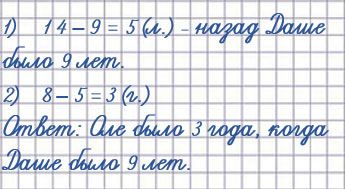 1) 14 – 9 = 5 (л.) – назад Даше
было 9 лет.
2) 8 – 5 = 3 (г.)
Ответ: Оле было 3 года, когда
Даше было 9 лет.